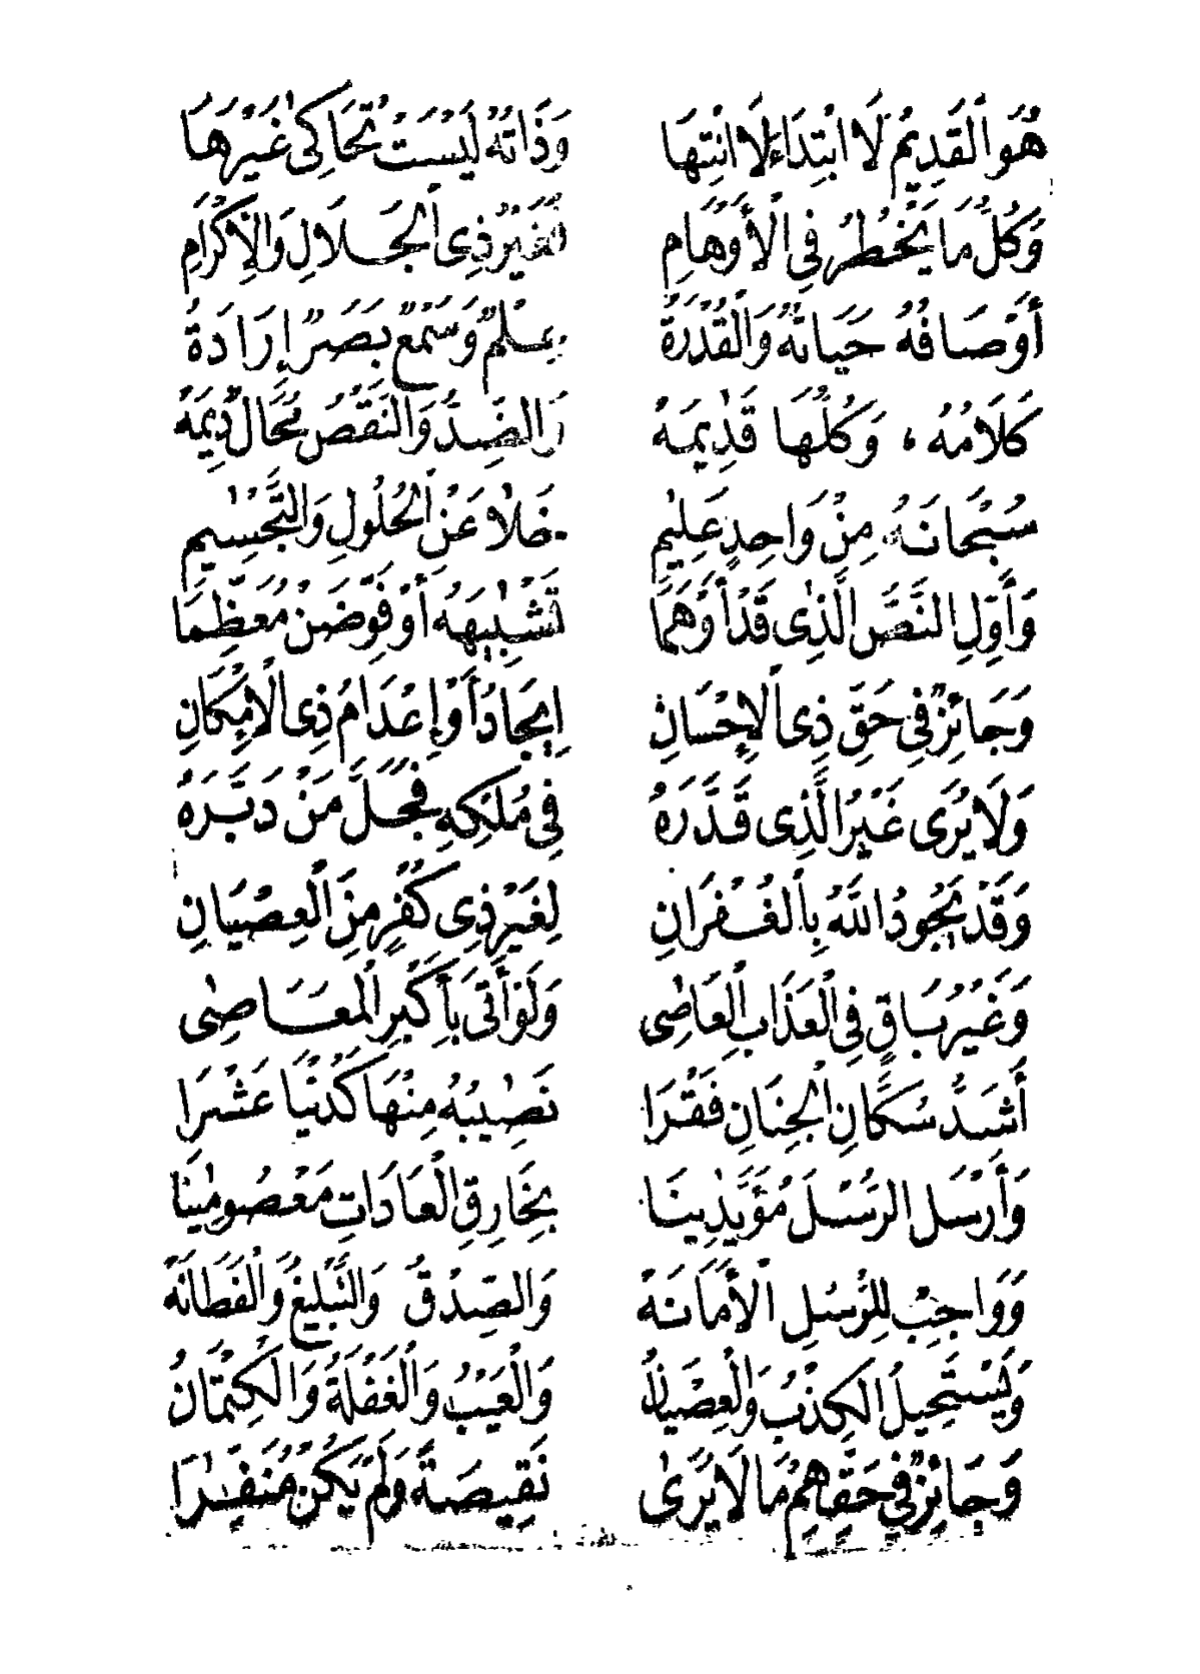 هُوَ الْقَدِيمُ لَا ابْتِدَاءَ لَا انْتِهَا وَذَاتُهُ لَيْسَتْ تُحَاكِى غَيْرَهَا
وَكُلُّ مَا يَخْطُرُ فِى الْأَوْهَامِ فَغَيْرُ ذِى الْجَلَالِ وَالْإِكْرَامِ
أَوْصَافُهُ حَيَاتُهُ وَالْقُدْرَةُ عِلْمٌ وَسَمْعٌ بَصَرٌ إِرَادَةُ
كَلَامُهُ ، وَكُلُّهَا قَدِيمَهْ وَالضِّدُّ وَالنَّقْصُ مُحَالُ دِيمَهْ
سُبْحَانَهُ مِنْ وَاحِدٍ عَلِيمِ خَلَا عَنِ الْحُلُولِ وَالتَّجْسِيمِ
وَأَوِّلِ النَّصَّ الَّذِى قَدْ أَوْهَمَا تَشْبِيهَهُ أَوْ فَوِّضَنْ مُعَظِّمَا
وَجَائِزٌ فِى حَقِّ ذِى الْإِحْسَانِ إِيجَادُ أَوْ إِعْدَامُ ذِى الْإِمْكَانِ
وَلَا يُرَى غَيْرُ الَّذِى قَدَّرَهُ فِى مُلْكِهِ فَجَلَّ مَنْ دَبَّرَهُ
وَقَدْ يَجُودُ اللَّهُ بِالْغُفْرَانِ لِغَيْرِ ذِى كُفْرٍ مِنَ الْعِصْيَانِ
وَغَيْرُ بَاقٍ فِى الْعَذَابِ الْعَاصِى وَلَوْ أَتَى بِأَكْبَرِ الْمَعَاصِى
أَشَدُّ سُكَّانِ الْجِنَانِ فَقْرَا نَصِيبُهُ مِنْهَا كَدُنْيَا عَشْرَا
وَأَرْسَلَ الرُّسْلَ مُؤَيَّدِينَا بِخَارِقِ الْعَادَاتِ مَعْصُومِينَا
وَوَاجِبٌ لِلرُّسُلِ الْأَمَانَهْ وَالصِّدْقُ وَالتَّبْلِيغُ وَالْفَطَانَهْ
وَيَسْتَحِيلُ الْكِذْبُ وَالْعِصْيَانُ وَالْعَيْبُ وَالْغَفْلَةُ وَالْكِتْمَانُ
وَجَائِزٌ فِى حَقِّهِمْ مَا لَا يُرَى نَقِيصَةً وَلَمْ يَكُنْ مُنَفِّرَا